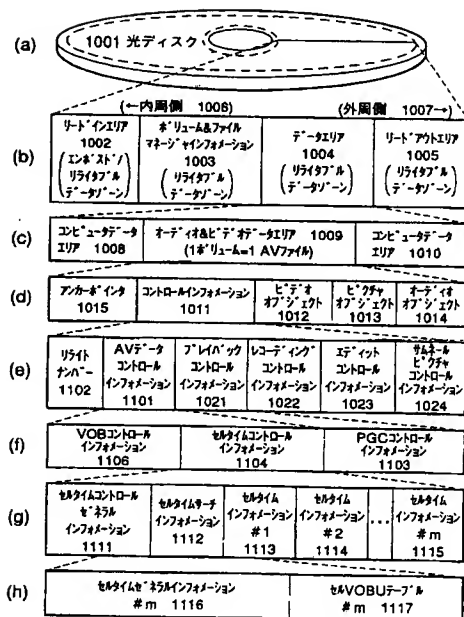 (a)
1001 光ディスク
(←内周側 1006)
(外周側 1007→)
(b)
リードインエリア
1002
(エンボスド/
リライタブル
データゾーン)
ボリューム&ファイル
マネージャインフォメーション
1003
(リライタブル
データゾーン)
データエリア
1004
(リライタブル
データゾーン)
リードアウトエリア
1005
(リライタブル
データゾーン)
(c)
コンピュータデータ
エリア 1008
オーディオ&ビデオデータエリア 1009
(1ボリューム=1 AVファイル)
コンピュータデータ
エリア 1010
(d)
アンカーポインタ
1015
コントロールインフォメーション
1011
ビデオ
オブジェクト
1012
ピクチャ
オブジェクト
1013
オーディオ
オブジェクト
1014
(e)
リライト
ナンバー
1102
AVデータ
コントロール
インフォメーション
1101
プレイバック
コントロール
インフォメーション
1021
レコーディング
コントロール
インフォメーション
1022
エディット
コントロール
インフォメーション
1023
サムネール
ピクチャ
コントロール
インフォメーション
1024
(f)
VOBコントロール
インフォメーション
1106
セルタイムコントロール
インフォメーション
1104
PGCコントロール
インフォメーション
1103
(g)
セルタイムコントロール
ゼネラル
インフォメーション
1111
セルタイムサーチ
インフォメーション
1112
セルタイム
インフォメーション
#1
1113
セルタイム
インフォメーション
#2
1114
...
セルタイム
インフォメーション
#m
1115
(h)
セルタイムゼネラルインフォメーション
#m 1116
セルVOBUテーブル
#m 1117